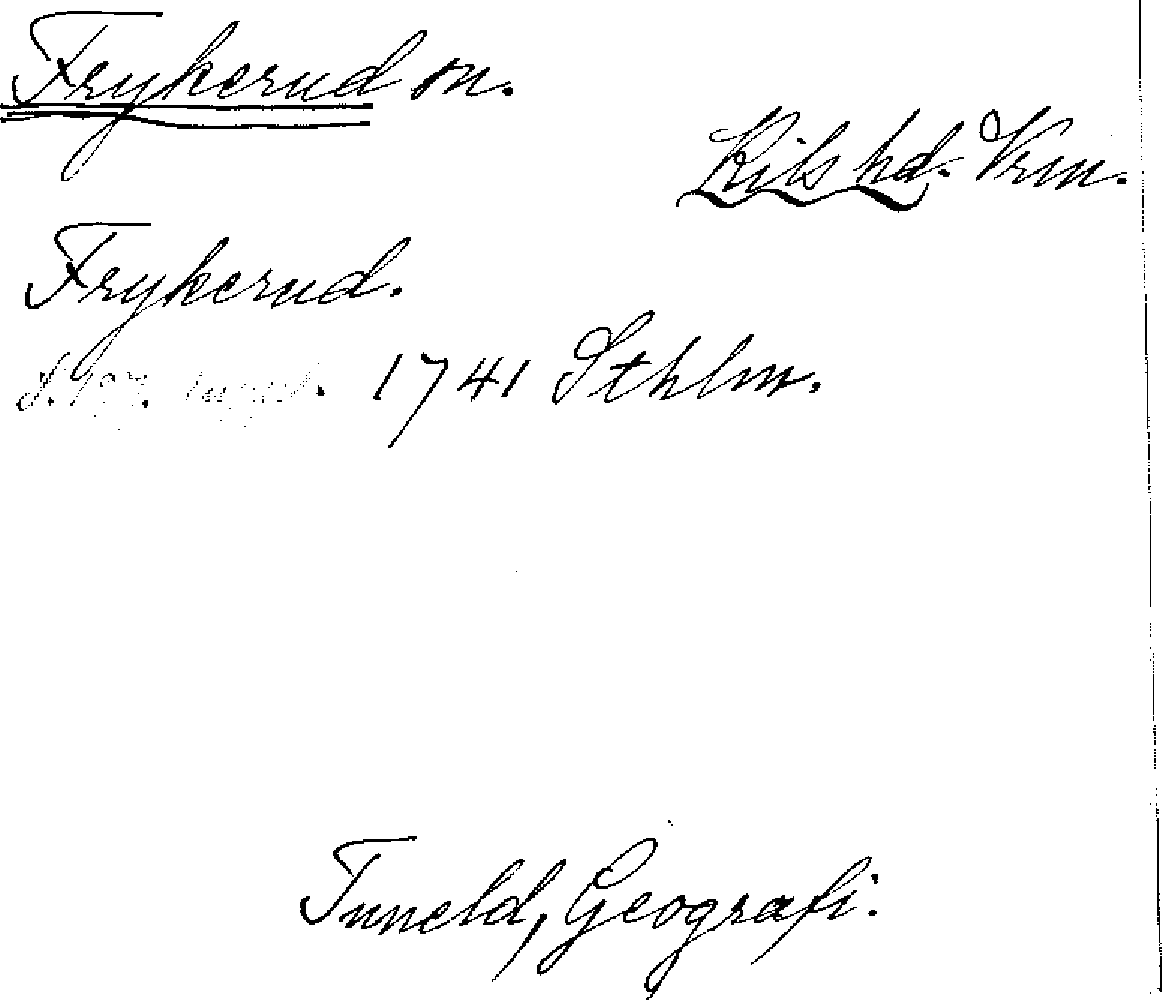 Frykerud sn.
Kils hd. Vrm.
Frykerud.
S. 197. 1741 Sthlm.
Tuneld, Geografi.